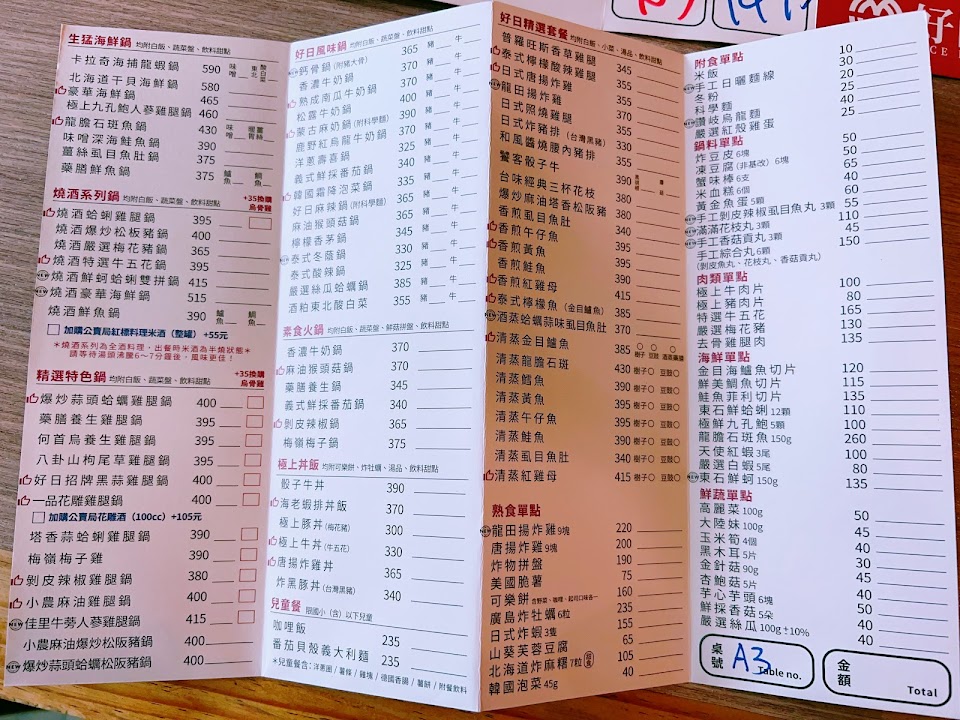 生猛海鮮鍋 均附白飯、蔬菜盤、飲料甜點
卡拉奇海捕龍蝦鍋 590 味噌 東北 酸白菜
北海道干貝海鮮鍋 580
豪華海鮮鍋 465
極上九孔鮑人蔘雞腿鍋 460
龍膽石斑魚鍋 430 味噌 暖胃 薑絲
味噌深海鮭魚鍋 390
薑絲虱目魚肚鍋 375
藥膳鮮魚鍋 375 鱸魚 鯛魚
燒酒系列鍋 均附白飯、蔬菜盤、飲料甜點 +35換購烏骨雞
燒酒蛤蜊雞腿鍋 395
燒酒爆炒松板豬鍋 400
燒酒嚴選梅花豬鍋 365
燒酒特選牛五花鍋 395
NEW 燒酒鮮蚵蛤蜊雙拼鍋 415
NEW 燒酒豪華海鮮鍋 515
燒酒鮮魚鍋 390 鱸魚 鯛魚
加購公賣局紅標料理米酒(整罐) +55元
*燒酒系列為全酒料理,出餐時米酒為半燒狀態*
請等待湯頭沸騰6~7分鐘後,風味更佳!
精選特色鍋 均附白飯、蔬菜盤、飲料甜點 +35換購烏骨雞
爆炒蒜頭蛤蠣雞腿鍋 400
藥膳養生雞腿鍋 395
何首烏養生雞腿鍋 395
八卦山枸尾草雞腿鍋 395
好日招牌黑蒜雞腿鍋 400
一品花雕雞腿鍋 400
加購公賣局花雕酒(100cc) +105元
塔香蒜蛤蜊雞腿鍋 390
梅嶺梅子雞 390
剝皮辣椒雞腿鍋 380
小農麻油雞腿鍋 400
NEW 佳里牛蒡人蔘雞腿鍋 415
小農麻油爆炒松阪豬鍋 400
NEW 爆炒蒜頭蛤蠣松阪豬鍋 400
好日風味鍋 均附白飯、蔬菜盤、飲料甜點
NEW 鈣骨鍋(附豬大骨) 365 豬 牛
香濃牛奶鍋 370 豬 牛
熟成南瓜牛奶鍋 370 豬 牛
松露牛奶鍋 400 豬 牛
蒙古麻奶鍋(附科學麵) 390 豬 牛
鹿野紅烏龍牛奶鍋 370 豬 牛
洋蔥壽喜鍋 365 豬 牛
義式鮮採番茄鍋 340 豬 牛
韓國霜降泡菜鍋 335 豬 牛
好日麻辣鍋(附科學麵) 365 豬 牛
麻油猴頭菇鍋 365 豬 牛
檸檬香茅鍋 345 豬 牛
NEW 泰式冬蔭鍋 330 豬 牛
泰式酸辣鍋 325 豬 牛
嚴選絲瓜蛤蠣鍋 385 豬 牛
酒粕東北酸白菜 355 豬 牛
素食火鍋 均附白飯、蔬菜盤、鮮菇拼盤、飲料甜點
香濃牛奶鍋 370
麻油猴頭菇鍋 370
藥膳養生鍋 345
義式鮮採番茄鍋 340
剝皮辣椒鍋 365
梅嶺梅子鍋 375
極上丼飯 均附可樂餅、炸牡蠣、湯品、飲料甜點
骰子牛丼 390
海老蝦排丼飯 370
極上豚丼(梅花豬) 300
極上牛丼(牛五花) 330
唐揚炸雞丼 365
炸黑豚丼(台灣黑豬) 340
兒童餐 限國小(含)以下兒童
咖哩飯 235
番茄貝殼義大利麵 235
*兒童餐含:洋蔥圈 / 薯條 / 雞塊 / 德國香腸 / 薯餅 / 附餐飲料
好日精選套餐 均附白飯、小菜、湯品、飲料甜點
普羅旺斯香草雞腿 345
泰式檸檬酸辣雞腿 355
日式唐揚炸雞 355
NEW 龍田揚炸雞 355
日式照燒雞腿 370
日式炸豬排(台灣黑豬) 355
和風醬燒腰內豬排 330
饕客骰子牛 390
台味經典三杯花枝 390
爆炒麻油塔香松阪豬 380
香煎虱目魚肚 340
香煎午仔魚 395
香煎黃魚 395
香煎鮭魚 390
香煎紅雞母 415
泰式檸檬魚(金目鱸魚) 385
NEW 酒蒸蛤蠣蒜味虱目魚肚 370
清蒸金目鱸魚 385 樹子 豆豉 酒蒸蒜頭
清蒸龍膽石斑 430 樹子 豆豉
清蒸鱈魚 420 樹子 豆豉
清蒸黃魚 395 樹子 豆豉
清蒸午仔魚 395 樹子 豆豉
清蒸鮭魚 390 樹子 豆豉
清蒸虱目魚肚 340 樹子 豆豉
清蒸紅雞母 415 樹子 豆豉
熟食單點
NEW 龍田揚炸雞 9塊 220
唐揚炸雞 9塊 200
炸物拼盤 190
美國脆薯 75
可樂餅 含野菜、咖哩、起司口味各一 160
廣島炸牡蠣 6粒 235
日式炸蝦 3隻 155
山葵芙蓉豆腐 65
北海道炸麻糬 7粒 105
韓國泡菜 45g 40
附食單點
米飯 10
NEW 手工日曬麵線 30
冬粉 20
科學麵 25
NEW 讚岐烏龍麵 40
嚴選紅殼雞蛋 25
鍋料單點
炸豆皮 6塊 50
凍豆腐(非基改) 6塊 50
蟹味棒 6支 65
米血糕 6個 40
黃金魚蛋 9顆 60
NEW 手工剝皮辣椒虱目魚丸 3顆 55
NEW 滿滿花枝丸 3顆 110
NEW 手工香菇貢丸 3顆 45
手工綜合丸 6顆 150
(剝皮魚丸、花枝丸、香菇貢丸)
肉類單點
極上牛肉片 100
極上豬肉片 80
特選牛五花 165
嚴選梅花豬 130
去骨雞腿肉 135
海鮮單點
金目海鱸魚切片 120
鮮美鯛魚切片 115
鮭魚菲利切片 135
東石鮮蛤蜊 12顆 110
極鮮九孔鮑 5顆 100
龍膽石斑魚 150g 260
天使紅蝦 3尾 100
嚴選白蝦 5尾 80
NEW 東石鮮蚵 150g 135
鮮蔬單點
高麗菜 100g 50
大陸妹 100g 50
玉米筍 4個 45
黑木耳 5片 40
金針菇 90g 30
杏鮑菇 5片 45
芋心芋頭 6塊 40
鮮採香菇 5朵 50
嚴選絲瓜 100g±10% 40
40
桌號 A3 Table no.
金額 Total
好